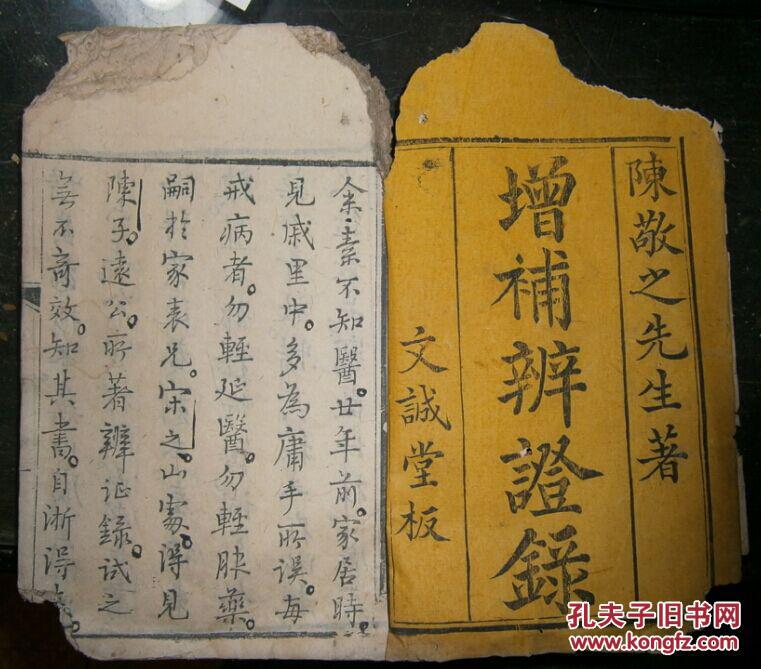 陳敬之先生著
增補辨證錄
文誠堂板
余素不知醫。廿年前。家居時。
見戚里中。多為庸手所誤。每
戒病者。勿輕延醫。勿輕服藥。
嗣於家表兄。宋之山處。得見
陳子。遠公。所著辨証錄。試之
無不奇效。知其書。自浙得
孔夫子旧书网
www.kongfz.com